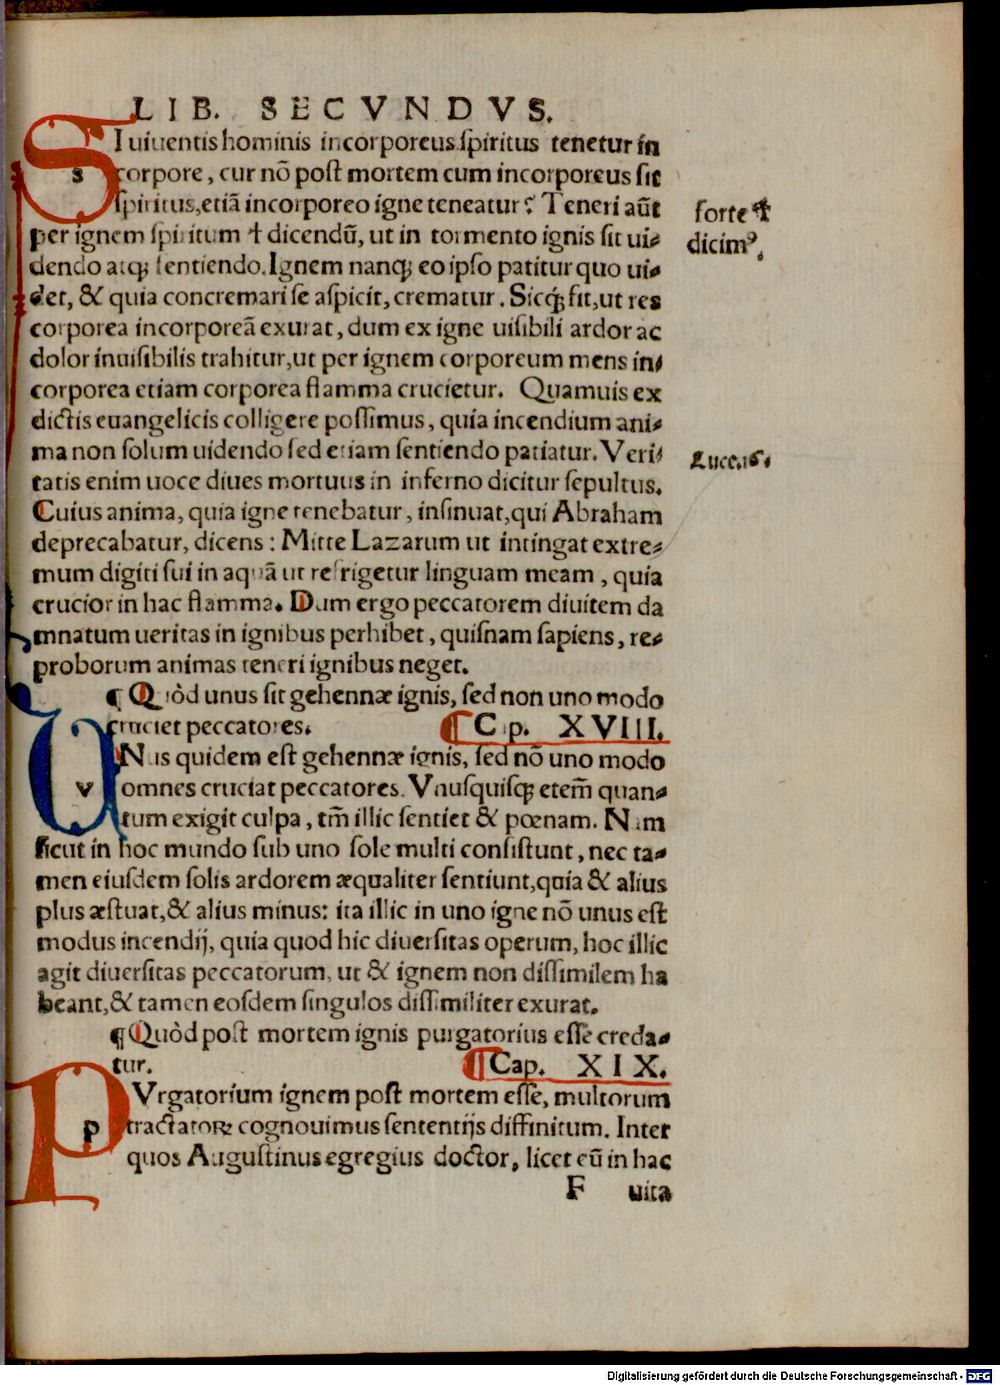 LIB. SECVNDVS.
SI uiuentis hominis incorporeus spiritus tenetur in
corpore, cur nō post mortem cum incorporeus sit
spiritus, etiā incorporeo igne teneatur? Teneri aūt
per ignem spiritum ✝ dicendū, ut in tormento ignis sit ui⸗
dendo atq; sentiendo. Ignem nanq; eo ipso patitur quo ui⸗
det, & quia concremari se aspicit, crematur. Sicq; fit, ut res
corporea incorporeā exurat, dum ex igne uisibili ardor ac
dolor inuisibilis trahitur, ut per ignem corporeum mens in⸗
corporea etiam corporea flamma crucietur. Quamuis ex
dictis euangelicis colligere possimus, quia incendium ani⸗
ma non solum uidendo sed etiam sentiendo patiatur. Veri⸗
tatis enim uoce diues mortuus in inferno dicitur sepultus.
Cuius anima, quia igne tenebatur, insinuat, qui Abraham
deprecabatur, dicens: Mitte Lazarum ut intingat extre⸗
mum digiti sui in aquā ut refrigetur linguam meam, quia
crucior in hac flamma. Dum ergo peccatorem diuitem da
mnatum ueritas in ignibus perhibet, quisnam sapiens, re⸗
proborum animas teneri ignibus neget.
¶ Quòd unus sit gehennæ ignis, sed non uno modo
cruciet peccatores. ¶ Cap. XVIII.
VNus quidem est gehennæ ignis, sed nō uno modo
omnes cruciat peccatores. Vnusquisq; etem̄ quan⸗
tum exigit culpa, tm̄ illic sentiet & pœnam. Nam
sicut in hoc mundo sub uno sole multi consistunt, nec ta⸗
men eiusdem solis ardorem æqualiter sentiunt, quia & alius
plus æstuat, & alius minus: ita illic in uno igne nō unus est
modus incendij, quia quod hic diuersitas operum, hoc illic
agit diuersitas peccatorum, ut & ignem non dissimilem ha
beant, & tamen eosdem singulos dissimiliter exurat.
¶ Quòd post mortem ignis purgatorius esse creda⸗
tur. ¶ Cap. XIX.
PVrgatorium ignem post mortem esse, multorum
tractatorꝝ cognouimus sententijs diffinitum. Inter
quos Augustinus egregius doctor, licet eū in hac
F uita
forte ✝
dicimꝰ
Luce.16.
Digitalisierung gefördert durch die Deutsche Forschungsgemeinschaft - DFG